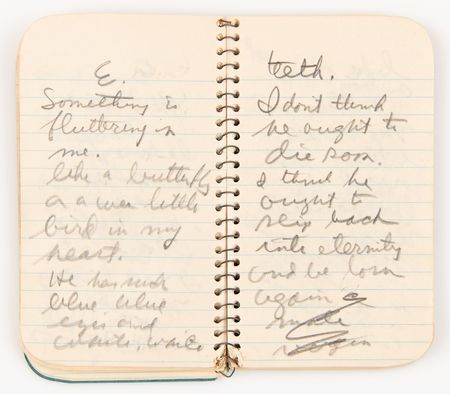 E.
Something is
fluttering in
me.
like a butterfly
or a wee little
bird in my
heart.
He has such
blue blue
eyes and
white, white
teeth.
I don't think
he ought to
die soon.
I think he
ought to
slip back
into eternity
and be born
again